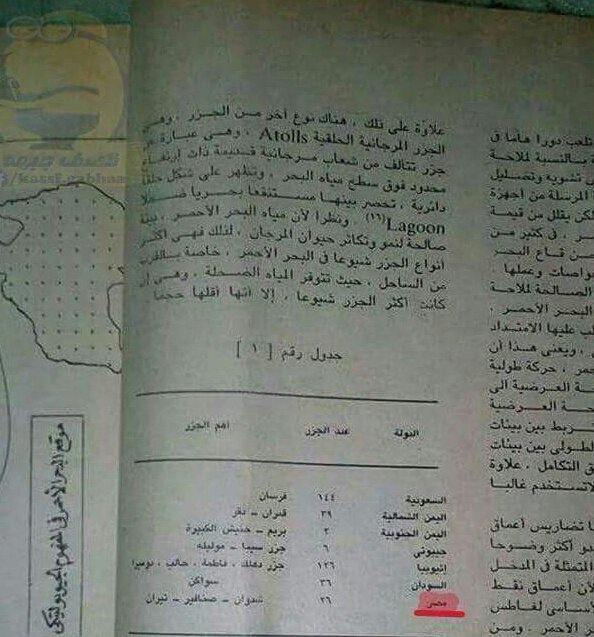 علاوة على ذلك ، هناك نوع آخر من الجزر ، وهى
الجزر المرجانية الحلقية Atolls ، وهى عبارة عن
جزر تتألف من شعاب مرجانية قديمة ذات إرتفاع
محدود فوق سطح مياه البحر ، وتظهر على شكل حلقا
دائرية ، تحصر بينها مستنقعا بحريا ضحلا
Lagoon (١٦) ونظرا لأن مياه البحر الأحمر ، بيئة
صالحة لنمو وتكاثر حيوان المرجان ، لذلك فهى أكثر
أنواع الجزر شيوعا فى البحر الأحمر ، خاصة بالقرب
من الساحل ، حيث تتوفر المياه الضحلة ، وهى إن
كانت أكثر الجزر شيوعا ، إلا أنها أقلها حجما
جدول رقم [ ١ ]
الدولة عدد الجزر أهم الجزر
السعودية ١٤٤ فرسان
اليمن الشمالية ٣٩ قمران - ذقر
اليمن الجنوبية ٢ بريم - حنيش الكبيرة
جيبوتى ٦ جزر سيبا - موليله
إثيوبيا ١٢٦ جزر دهلك ، فاطمة ، حالب ، دوميرا
السودان ٣٦ سواكن
مصر ٢٦ شدوان - صنافير - تيران
تلعب دورا هاما ق
ة بالنسبة للملاحة
تشويه وتضليل
ة المرسلة من أجهزة
لكن يقلل من قيمة
، فى كثير من
من قاع البحر
واصلات وعملها
الصالحة للملاحة
البحر الأحمر .
لب عليها الامتداد
، ويعنى هذا أن
حمر ، حركة طولية
ة العرضية الى
حة العرضية
ربط بين بيئات
لطولى بين بيئات
ق التكامل ، علاوة
لاتستخدم غالبا
ا تضاريس أعماق
دو أكثر وضوحا
لمتمثلة فى المدخل
لأن أعماق نقط
أساسى لغاطس
ر الأحمر . ومن
موقع البحر الأحمر فى المفهوم الجيوبوليتيكى